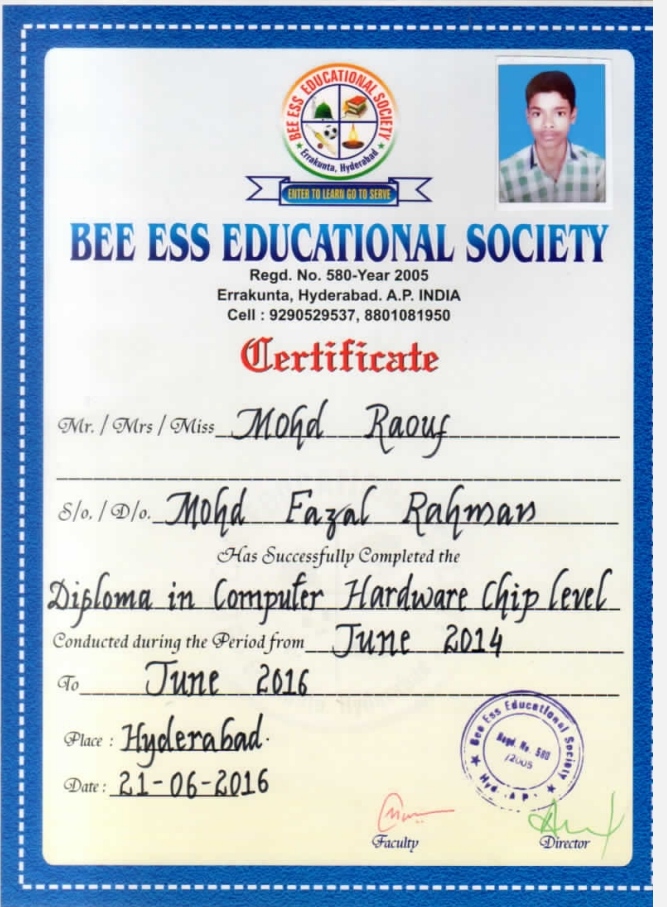 BEE ESS EDUCATIONAL SOCIETY
Errakunta, Hyderabad
ENTER TO LEARN GO TO SERVE
BEE ESS EDUCATIONAL SOCIETY
Regd. No. 580-Year 2005
Errakunta, Hyderabad. A.P. INDIA
Cell : 9290529537, 8801081950
Certificate
Mr. / Mrs / Miss Mohd Raouf
S/o. / D/o. Mohd Fazal Rahman
Has Successfully Completed the
Diploma in Computer Hardware Chip level
Conducted during the Period from June 2014
To June 2016
Place : Hyderabad.
Date : 21-06-2016
Bee Ess Educational Society
Regd. No. 580
/2005
Hyd. A.P.
Faculty
Director